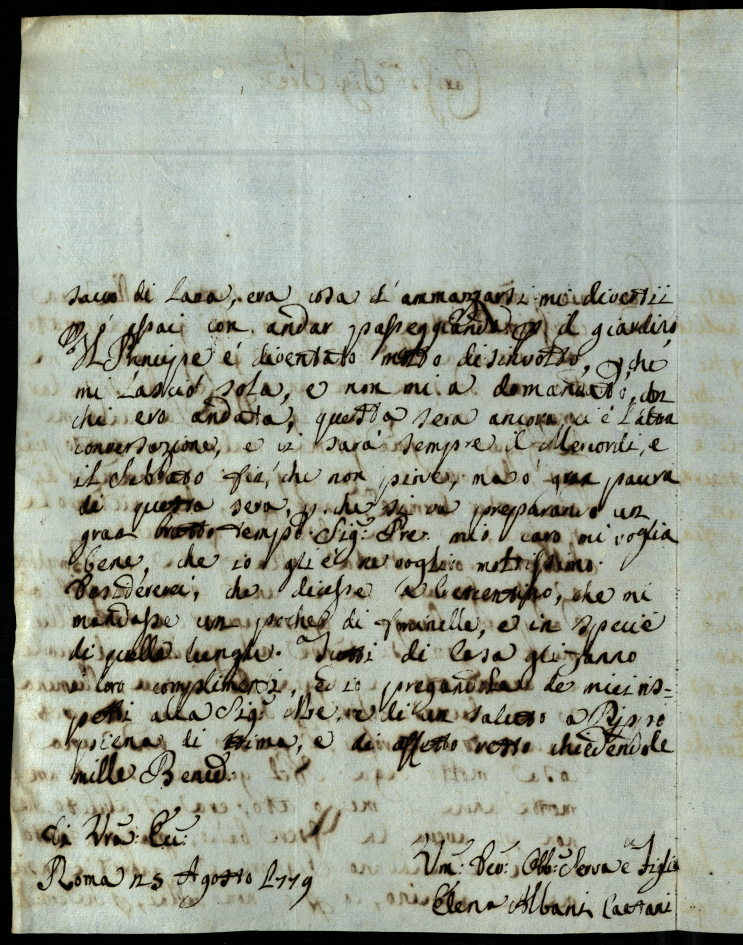 sacco di lana, era cosa d'ammazzarsi mi divertii
assai con andar passeggiando p il giardino
Il Principe é diventato molto disinvolto, p che
mi lasció sola, e non mi a domandato, con
chi ero andata, questa sera ancora ci é l'altra
conversazione, e ci sará sempre il Mercordi, e
il Sabbato fin, che non piove, ma ó gran paura
di questa sera, p che si va preparando un
gran brutto tempo. Sig:r Pre. mio caro mi voglia
bene, che io gli é ne voglio moltissimo.
Desidererei, che dicesse a Clementino, che mi
mandasse un poche di formelle, e in specie
di quelle lunghe. Tutti di Casa gli fanno
i loro complimenti, Ed io pregandola de miei ris-
petti alla Sig:ra Mre, e di un saluto a Pippo
piena di stima, e di affetto resto chiedendole
mille Bened:
di Vra: Ecc:
Roma 25 Agosto 1779
Um:a Dev:a Obb:a Serva e Figlia
Elena Albani Caetani